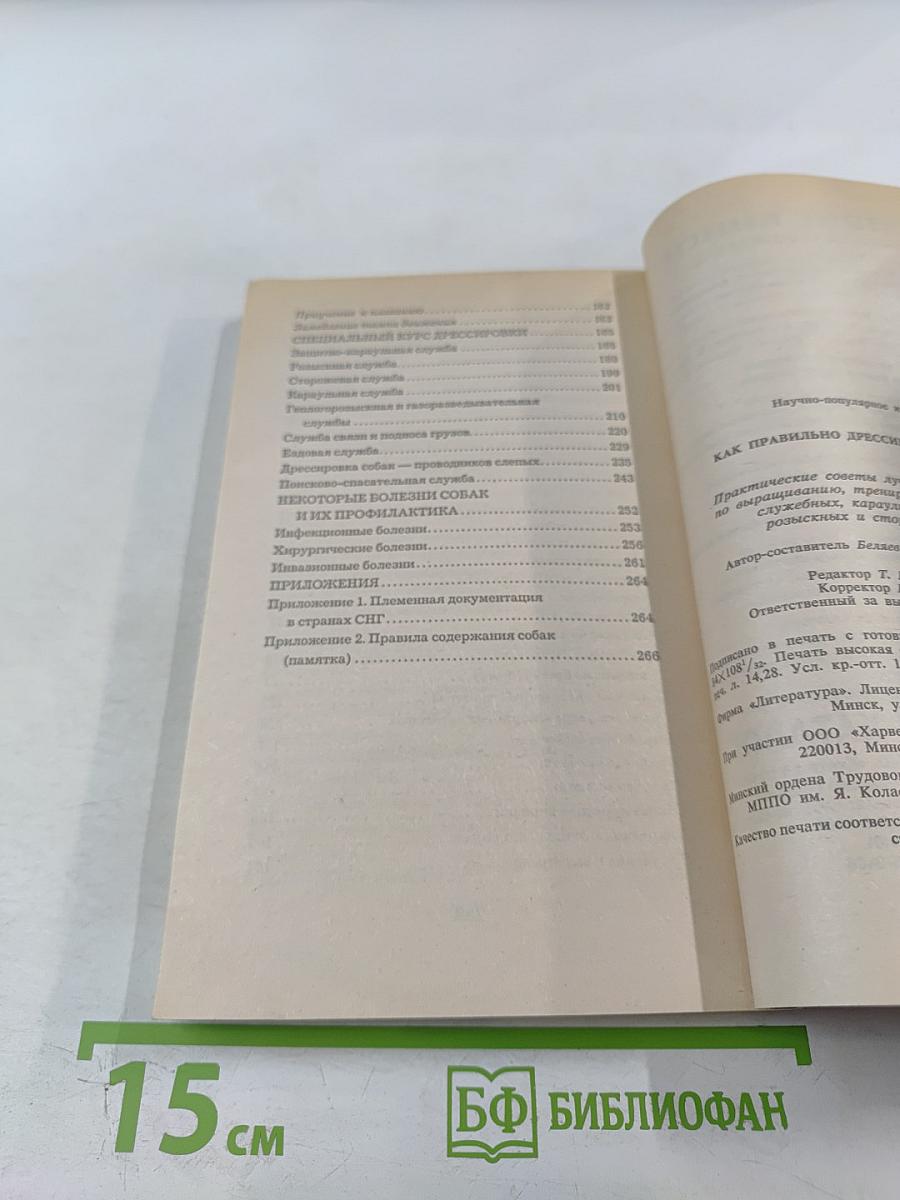 Приучение к плаванию 162
Замедление темпа движения 163
СПЕЦИАЛЬНЫЙ КУРС ДРЕССИРОВКИ 165
Защитно-караульная служба 166
Розыскная служба 180
Сторожевая служба 199
Караульная служба 201
Геологорозыскная и газоразведывательная
службы 210
Служба связи и подноса грузов 220
Ездовая служба 229
Дрессировка собак — проводников слепых 235
Поисково-спасательная служба 243
НЕКОТОРЫЕ БОЛЕЗНИ СОБАК
И ИХ ПРОФИЛАКТИКА 252
Инфекционные болезни 253
Хирургические болезни 256
Инвазионные болезни 261
ПРИЛОЖЕНИЯ 264
Приложение 1. Племенная документация
в странах СНГ 264
Приложение 2. Правила содержания собак
(памятка) 266
Научно-популярное
КАК ПРАВИЛЬНО ДРЕССИ
Практические советы лу
по выращиванию, тренир
служебных, караул
розыскных и стор
Автор-составитель Беляев
Редактор Т.
Корректор
Ответственный за вы
Подписано в печать с готов
84Х108¹/₃₂. Печать высокая
печ. л. 14,28. Усл. кр.-отт. 1
Фирма «Литература». Лицен
Минск, у
При участии ООО «Харве
220013, Минс
Минский ордена Трудово
МППО им. Я. Колас
Качество печати соответс
с
15 см
БФ БИБЛИОФАН